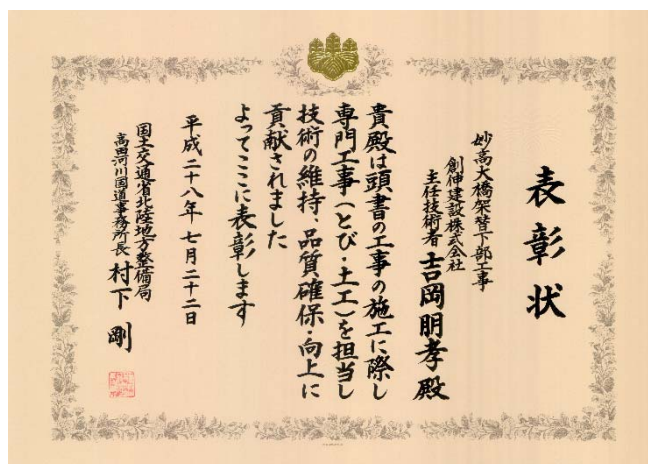 表彰状
妙高大橋架替下部工事
創伸建設株式会社
主任技術者 吉岡明孝殿
貴殿は頭書の工事の施工に際し
専門工事(とび・土工)を担当し
技術の維持・品質確保・向上に
貢献されました
よってここに表彰します
平成二十八年七月二十二日
国土交通省北陸地方整備局
高田河川国道事務所長 村下剛